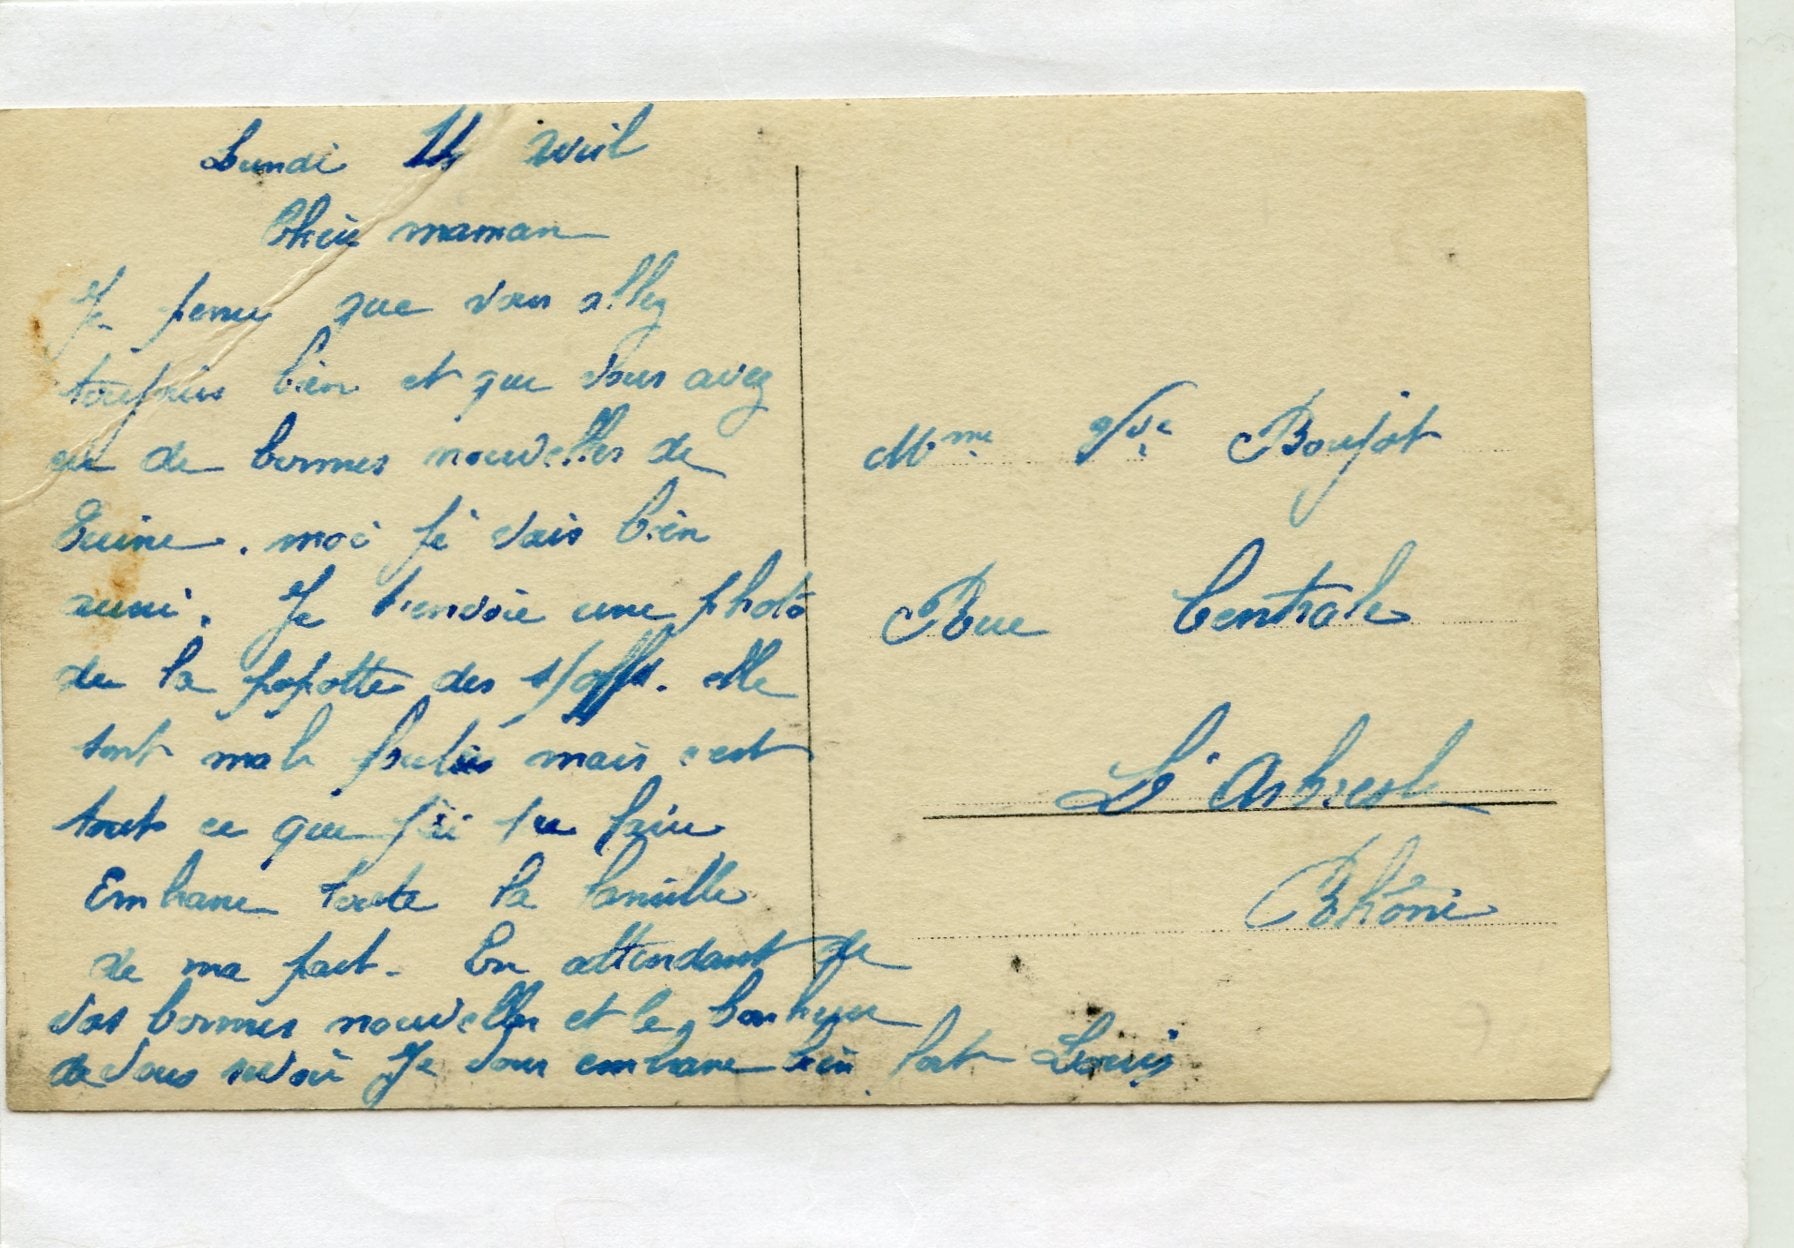 Lundi 14 Avril
Chère maman
Je pense que vous allez
toujours bien et que vous avez
eu de bonnes nouvelles de
moi je vais bien
aussi. Je t'envoie une photo
de la popotte des s/off. elle
sont mal mais c'est
tout ce que j'ai pu faire
Embrasse toute la famille
de ma part. En attendant de
vos bonnes nouvelles et le bonheur
de vous revoir Je vous embrasse bien fort Louis
Mme Vve Boujot
Rue Centrale
L'Arbresle
Rhône